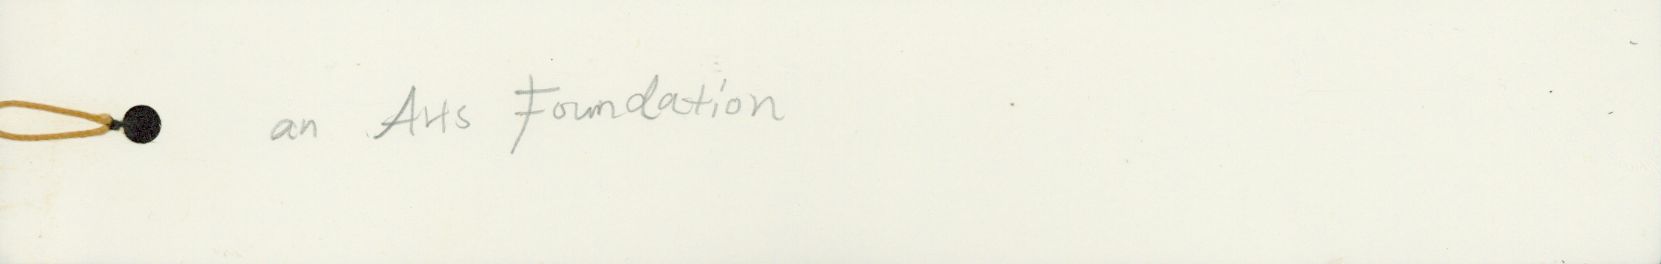 an Arts Foundation